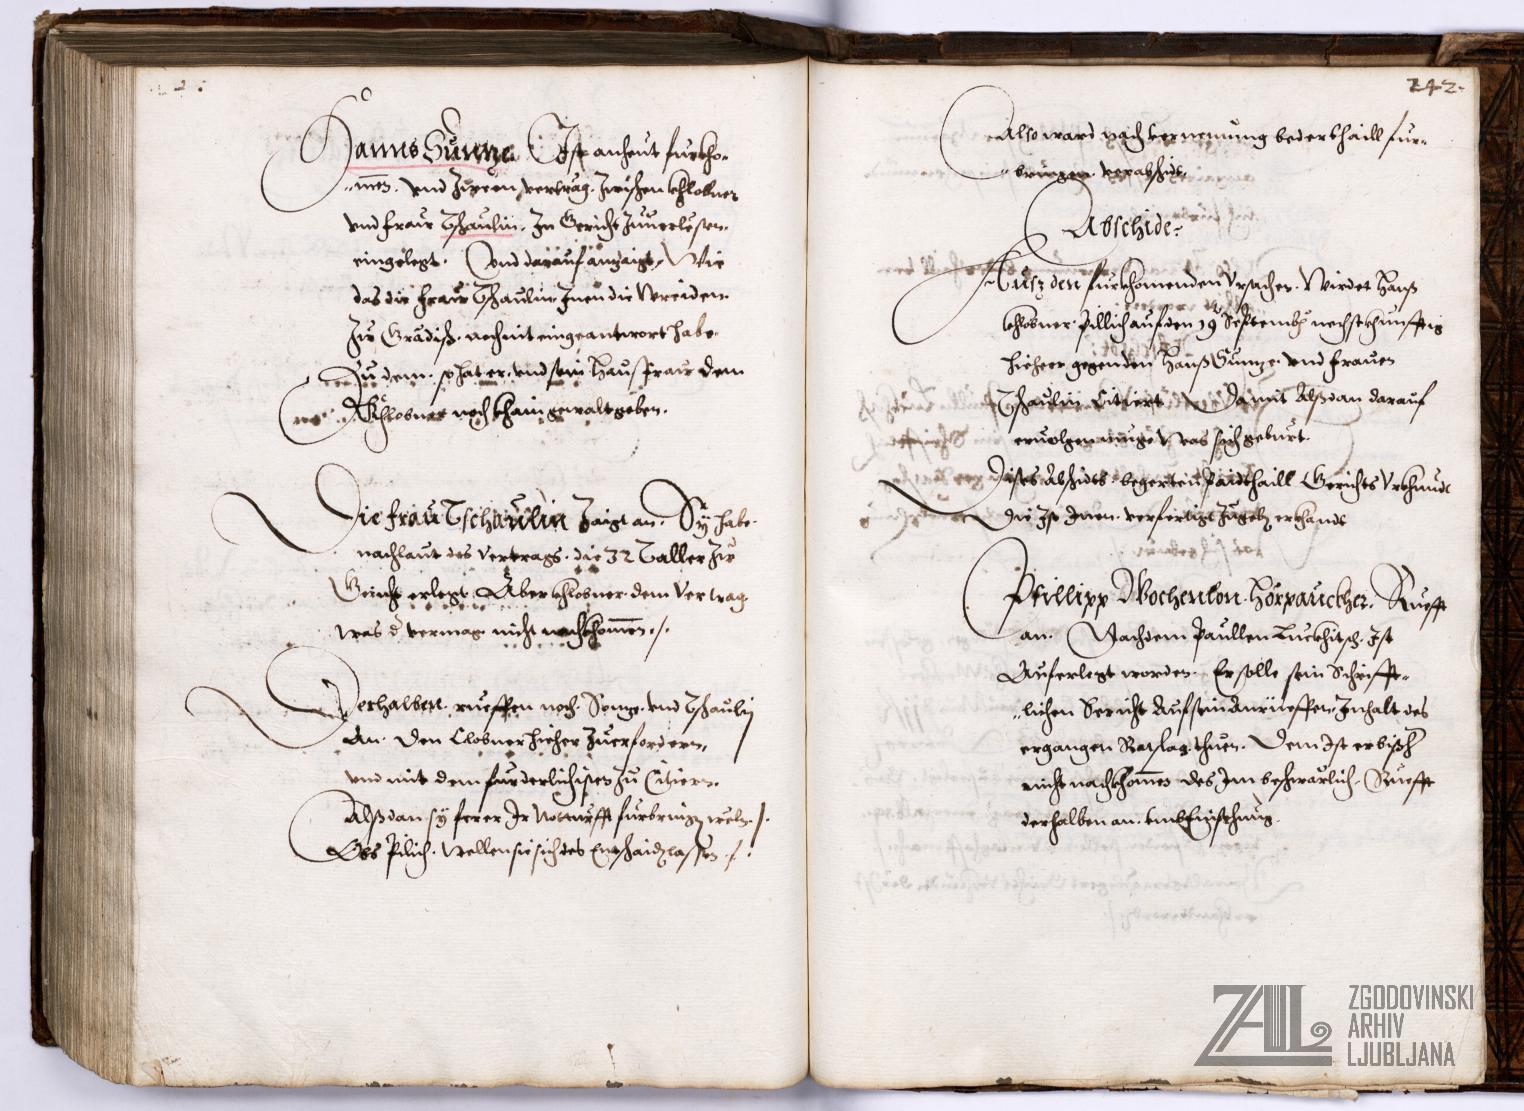 Hanns Sunnze Ist anheut furkho-
men. und Irren vertrag. Zwischen Khlobner
und fraw Tschaulin. In Gericht Zuuerlesen.
eingelegt. Und darauf anzaigt, Wie
das die fraw Tschaulin Inen die Weiden.
Zu Gradisch noch nit eingeantwort habe.
Zu dem. so hat er. und sein Hausfraw dem
Khlobner noch khain gewalt geben.
Die frau Tschaulin Zaigt an. Sÿ habe.
nach laut des vertrags. die 32 Taller Zu
Gericht erlegt. Aber Khlobner. dem Vertrag
was d vermag. nicht nachkhomen./.
Derhalben. rueffen noch. Sunze. und Tschaulin
An. Den Clobner hieher Zuerfordern,
und mit dem furderlichisten Zu Citiern.
Alßdan sÿ ferer Ir Notturfft furbringen welln./.
Obs Pilich. Wellen sie sich des Entschaidts lassen./.
242.
Also ward nach vernemung beder thaill fur-
bringen. verabschidt.
Abschide:
Ausz den furkhomenden Ursachen. Wirdet Hanß
Khlobner. Pillich auf den 19 Septemb nechstkhunfftig
hieheer gegen den Hanß Sunze. und frauen
Tschaulin Citiert. Damit Alßdan darauf
eruolgen muge Was sich geburt.
Dises Abschidts. begerten Paidthaill Gerichts Urkhundt
Die Ist Inen. verfertigt Zugeben erkhandt
Phillipp Hörpauckher. Ruefft
an. Nachdem Paullen Luckhitsch. Ist
Auferlegt worden. Er solle sein Schrifft-
lichen Bericht Auf sein Anrüeffen. Inhalt des
ergangen Ratslag. thuen. Dem Ist er bißh
nicht nachkhomen. des Im beschwärlich. Ruefft
derhalben an. umb Einsehung.
ZAL ZGODOVINSKI
ARHIV
LJUBLJANA